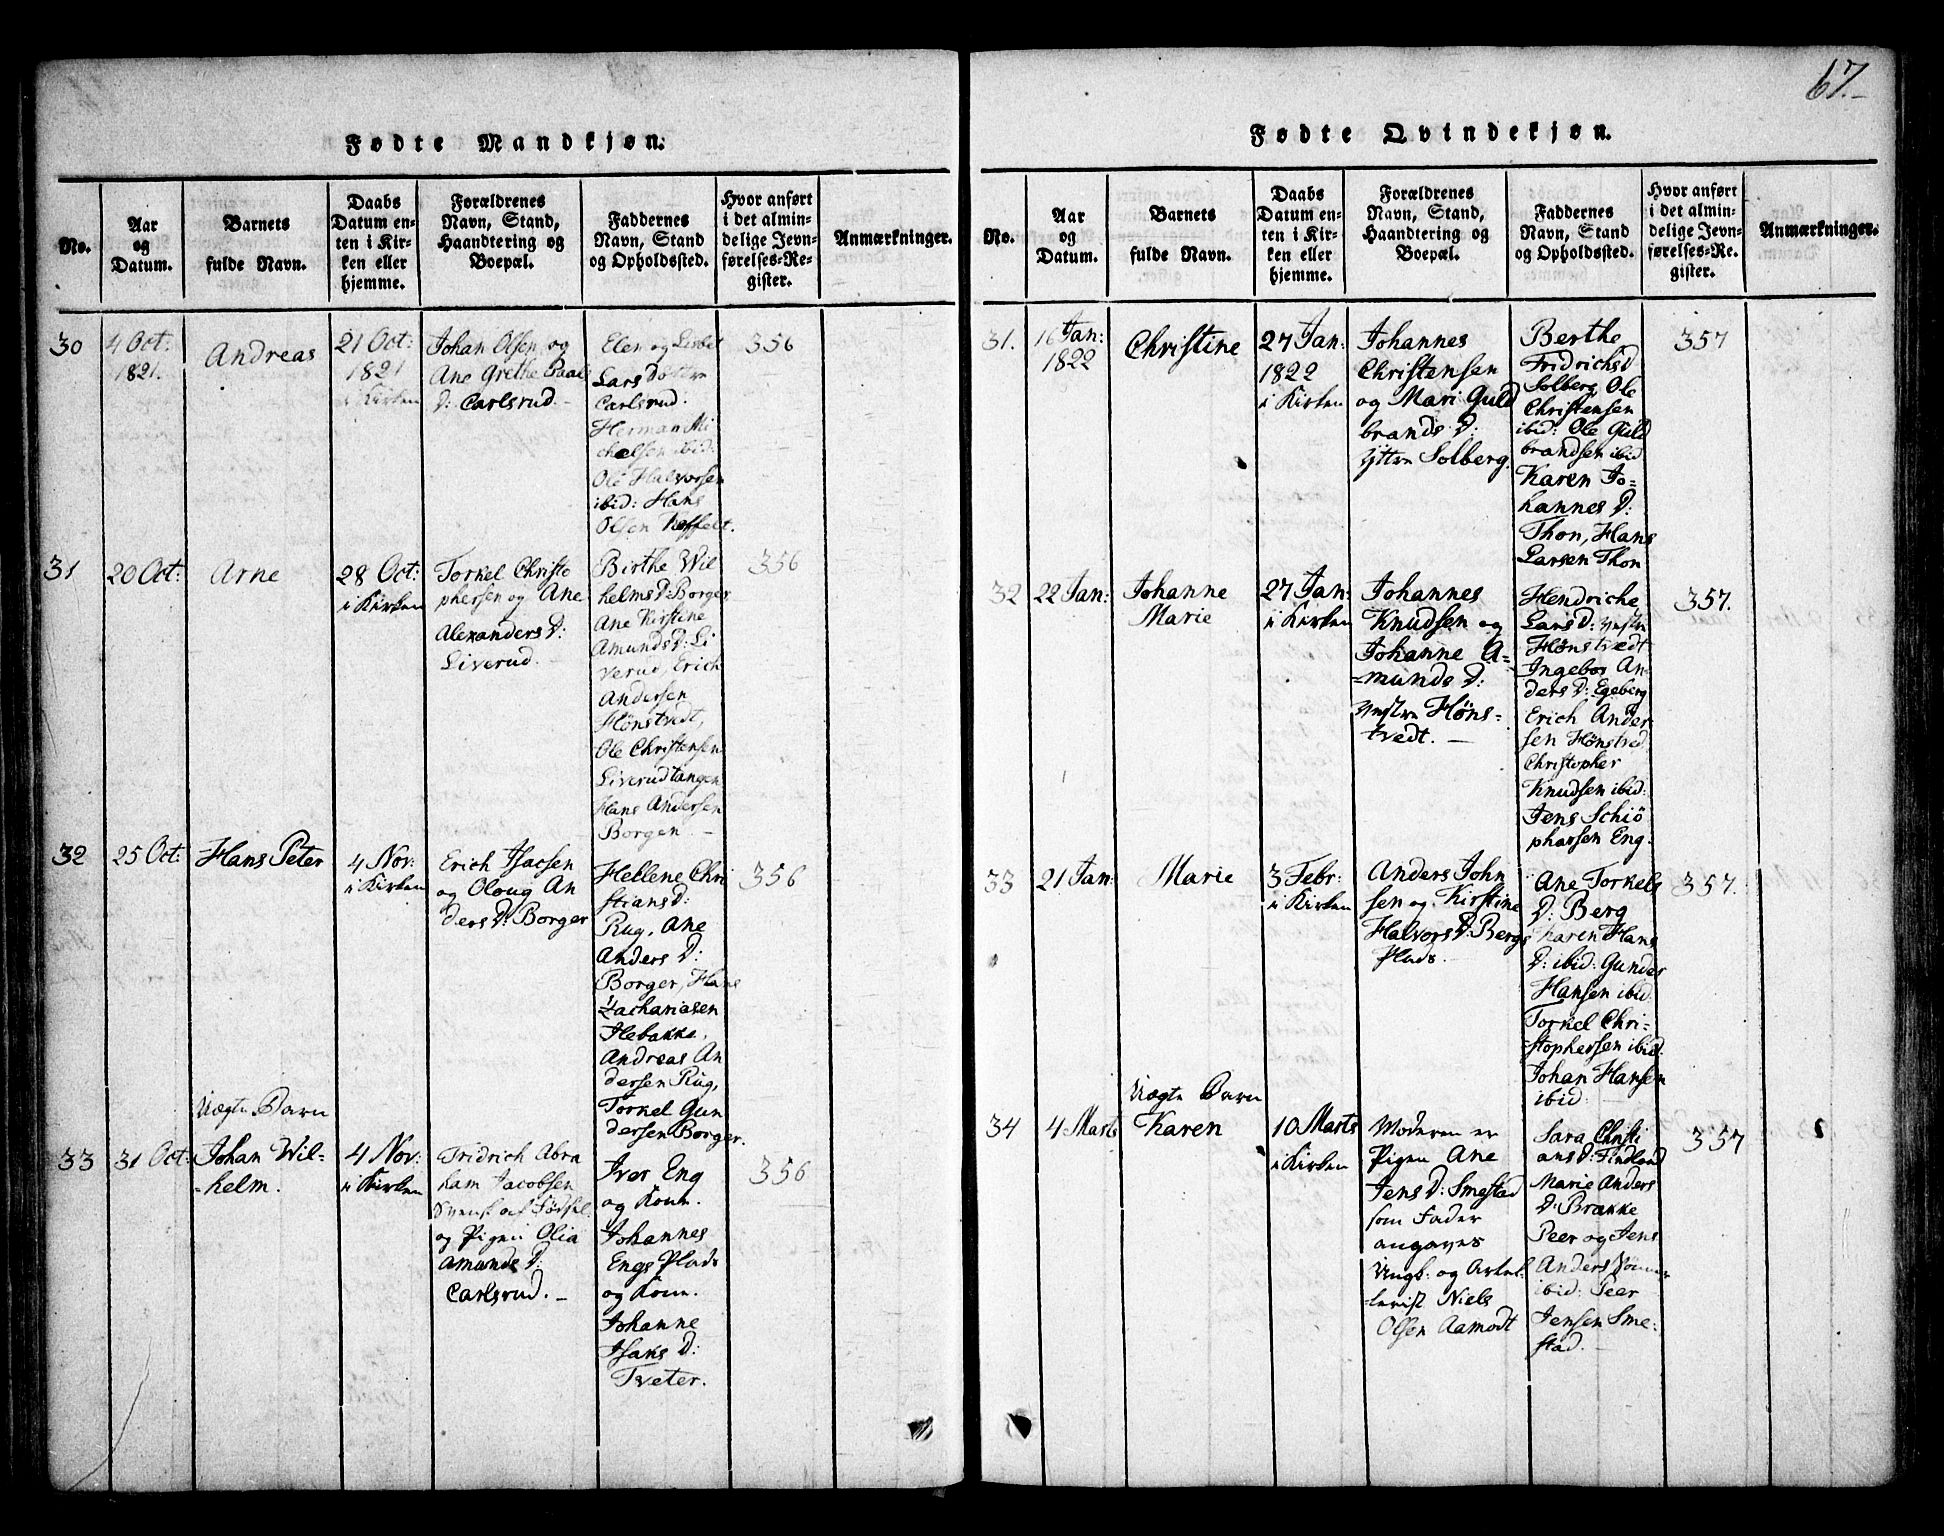 67.-
Fødte Mandkjøn.
No.
Aar
og
Datum.
Barnets
fulde Navn.
Daabs
Datum en-
ten i Kir-
ken eller
hjemme.
Forældrenes
Navn, Stand,
Haandtering og
Boepæl.
Faddernes
Navn, Stand
og Opholdssted.
Hvor anført
i det almin-
delige Jevn-
førelses-Re-
gister.
Anmærkninger.
30
4 Oct:
1821.
Andreas
21 Oct:
1821
i Kirken
Johan Olsen og
Ane Grethe Paals
D: Carlsrud. -
Elen og Lisbet
Lars Dottre
Carlsrud.
Herman Mi
chelsen ibid:
Ole Halvorsen
ibid: Hans
Olsen Toffelt.
356
31
20 Oct:
Arne
28 Oct:
i Kirken
Torkel Christo
phersen og Ane
Alexanders D:
Liverud. -
Birthe Wil
helms D: Borger
Ane Kirstine
Amunds D: Li
verud, Erich
Andersen
Hönstvedt,
Ole Christensen
Liverudtangen
Hans Andersen
Borgen. -
356
32
25 Oct:
Hans Peter
4 Nov:
i Kirken
Erich Isacsen
og Oloug An
ders D: Borger
Hellene Chri
stians D:
Rug, Ane
Anders D:
Borger, Hans
Zachariasen
Ilebakke,
Andreas An
dersen Rug,
Torkel Gun
dersen Borger.
356
Uægte Barn
33
31 Oct:
Johan Wil-
-helm.
4 Nov:
i Kirken
Fridrich Abra
ham Jacobsen
Svensk af Födsel
og Pigen Olia
Amunds D:
Carlsrud. -
Iver Eng
og Kone.
Johannes
Engs Plads
og Kone.
Johanne
Isaks D:
Tveter.
356
Fødte Qvindekjøn.
No.
Aar
og
Datum.
Barnets
fulde Navn.
Daabs
Datum en-
ten i Kir-
ken eller
hjemme.
Forældrenes
Navn, Stand,
Haandtering og
Boepæl.
Faddernes
Navn, Stand
og Opholdssted.
Hvor anført
i det almin-
delige Jevn-
førelses-Re-
gister.
Anmærkninger.
31.
16 Jan:
1822
Christine
27 Jan:
1822
i Kirken
Johannes
Christensen
og Mari Guld
brands D:
Yttre Solberg.
Berthe
Fridrichs D
Solberg Ole
Christensen
ibid: Ole Guld
brandsen ibid
Karen Jo-
hannes D:
Thon, Hans
Larsen Thon
357
32
22 Jan:
Johanne
Marie
27 Jan:
i Kirken
Johannes
Knudsen og
Johanne A-
-munds D:
Vestre Höns-
tvedt. -
Hendriche
Lars D: Vestre
Hönstvedt
Ingebor An-
ders D: Egeberg
Erich Ander
sen Hönstved
Christopher
Knudsen ibid:
Jens Schiö
phersen Eng.
357.
33
21 Jan:
Marie
3 Febr:
i Kirken
Anders John
sen og Kirstine
Halvors D: Bergs
Plads. -
Ane Torkels
D: Berg
Karen Hans
D: ibid: Gunder
Hansen ibid.
Torkel Chri-
-stophersen ibid.
Johan Hansen
ibid. -
357.
Uægte Barn
34
4 Marts
Karen
10 Marts
i Kirken
Moderen er
Pigen Ane
Jens D: Smestad
som Fader
angaves
Ungk: og Artel-
-lerist Niels
Olsen Aamodt
Sara Christi
ans D: Findland
Marie Anders
D: Brække
Peer og Jens
Anders Sönner
ibid: Peer
Jensen Sme-
stad. -
357